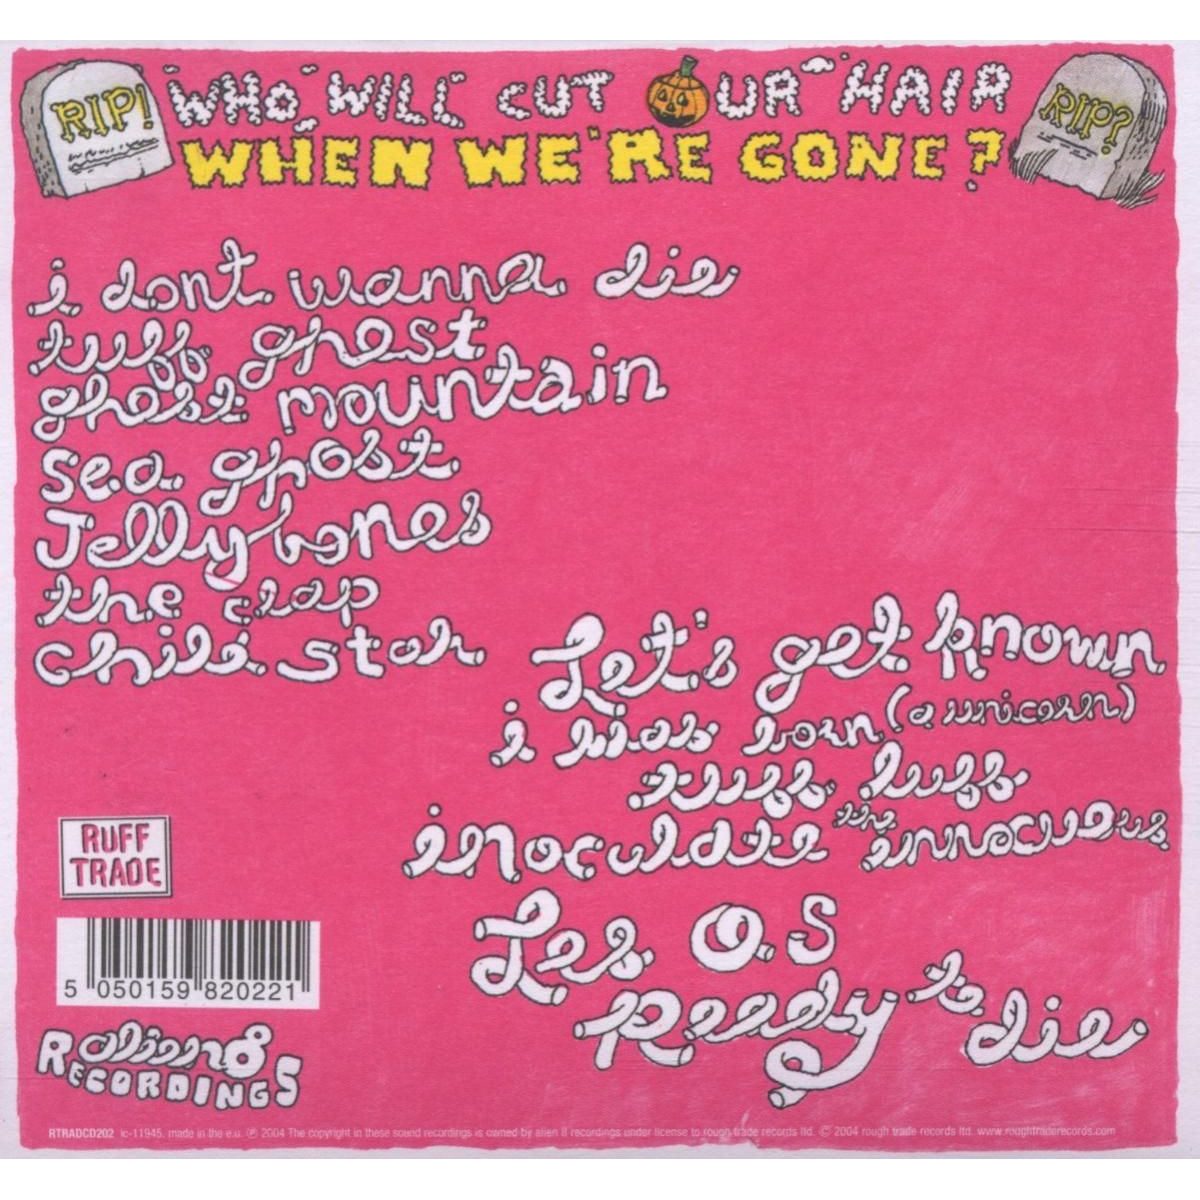 RIP!
WHO WILL CUT OUR HAIR
WHEN WE'RE GONE?
RIP?
i dont wanna die
tuff ghost
ghost mountain
sea ghost
Jellybones
the clap
child star
Let's get known
i was born (a unicorn)
tuff luff
inoculate the innocuous
Les O.S
Ready to die
RUFF
TRADE
5 050159 820221
alien8
RECORDINGS
RTRADCD202 lc-11945. made in the e.u. ℗ 2004 The copyright in these sound recordings is owned by alien 8 recordings under license to rough trade records ltd. © 2004 rough trade records ltd. www.roughtraderecords.com